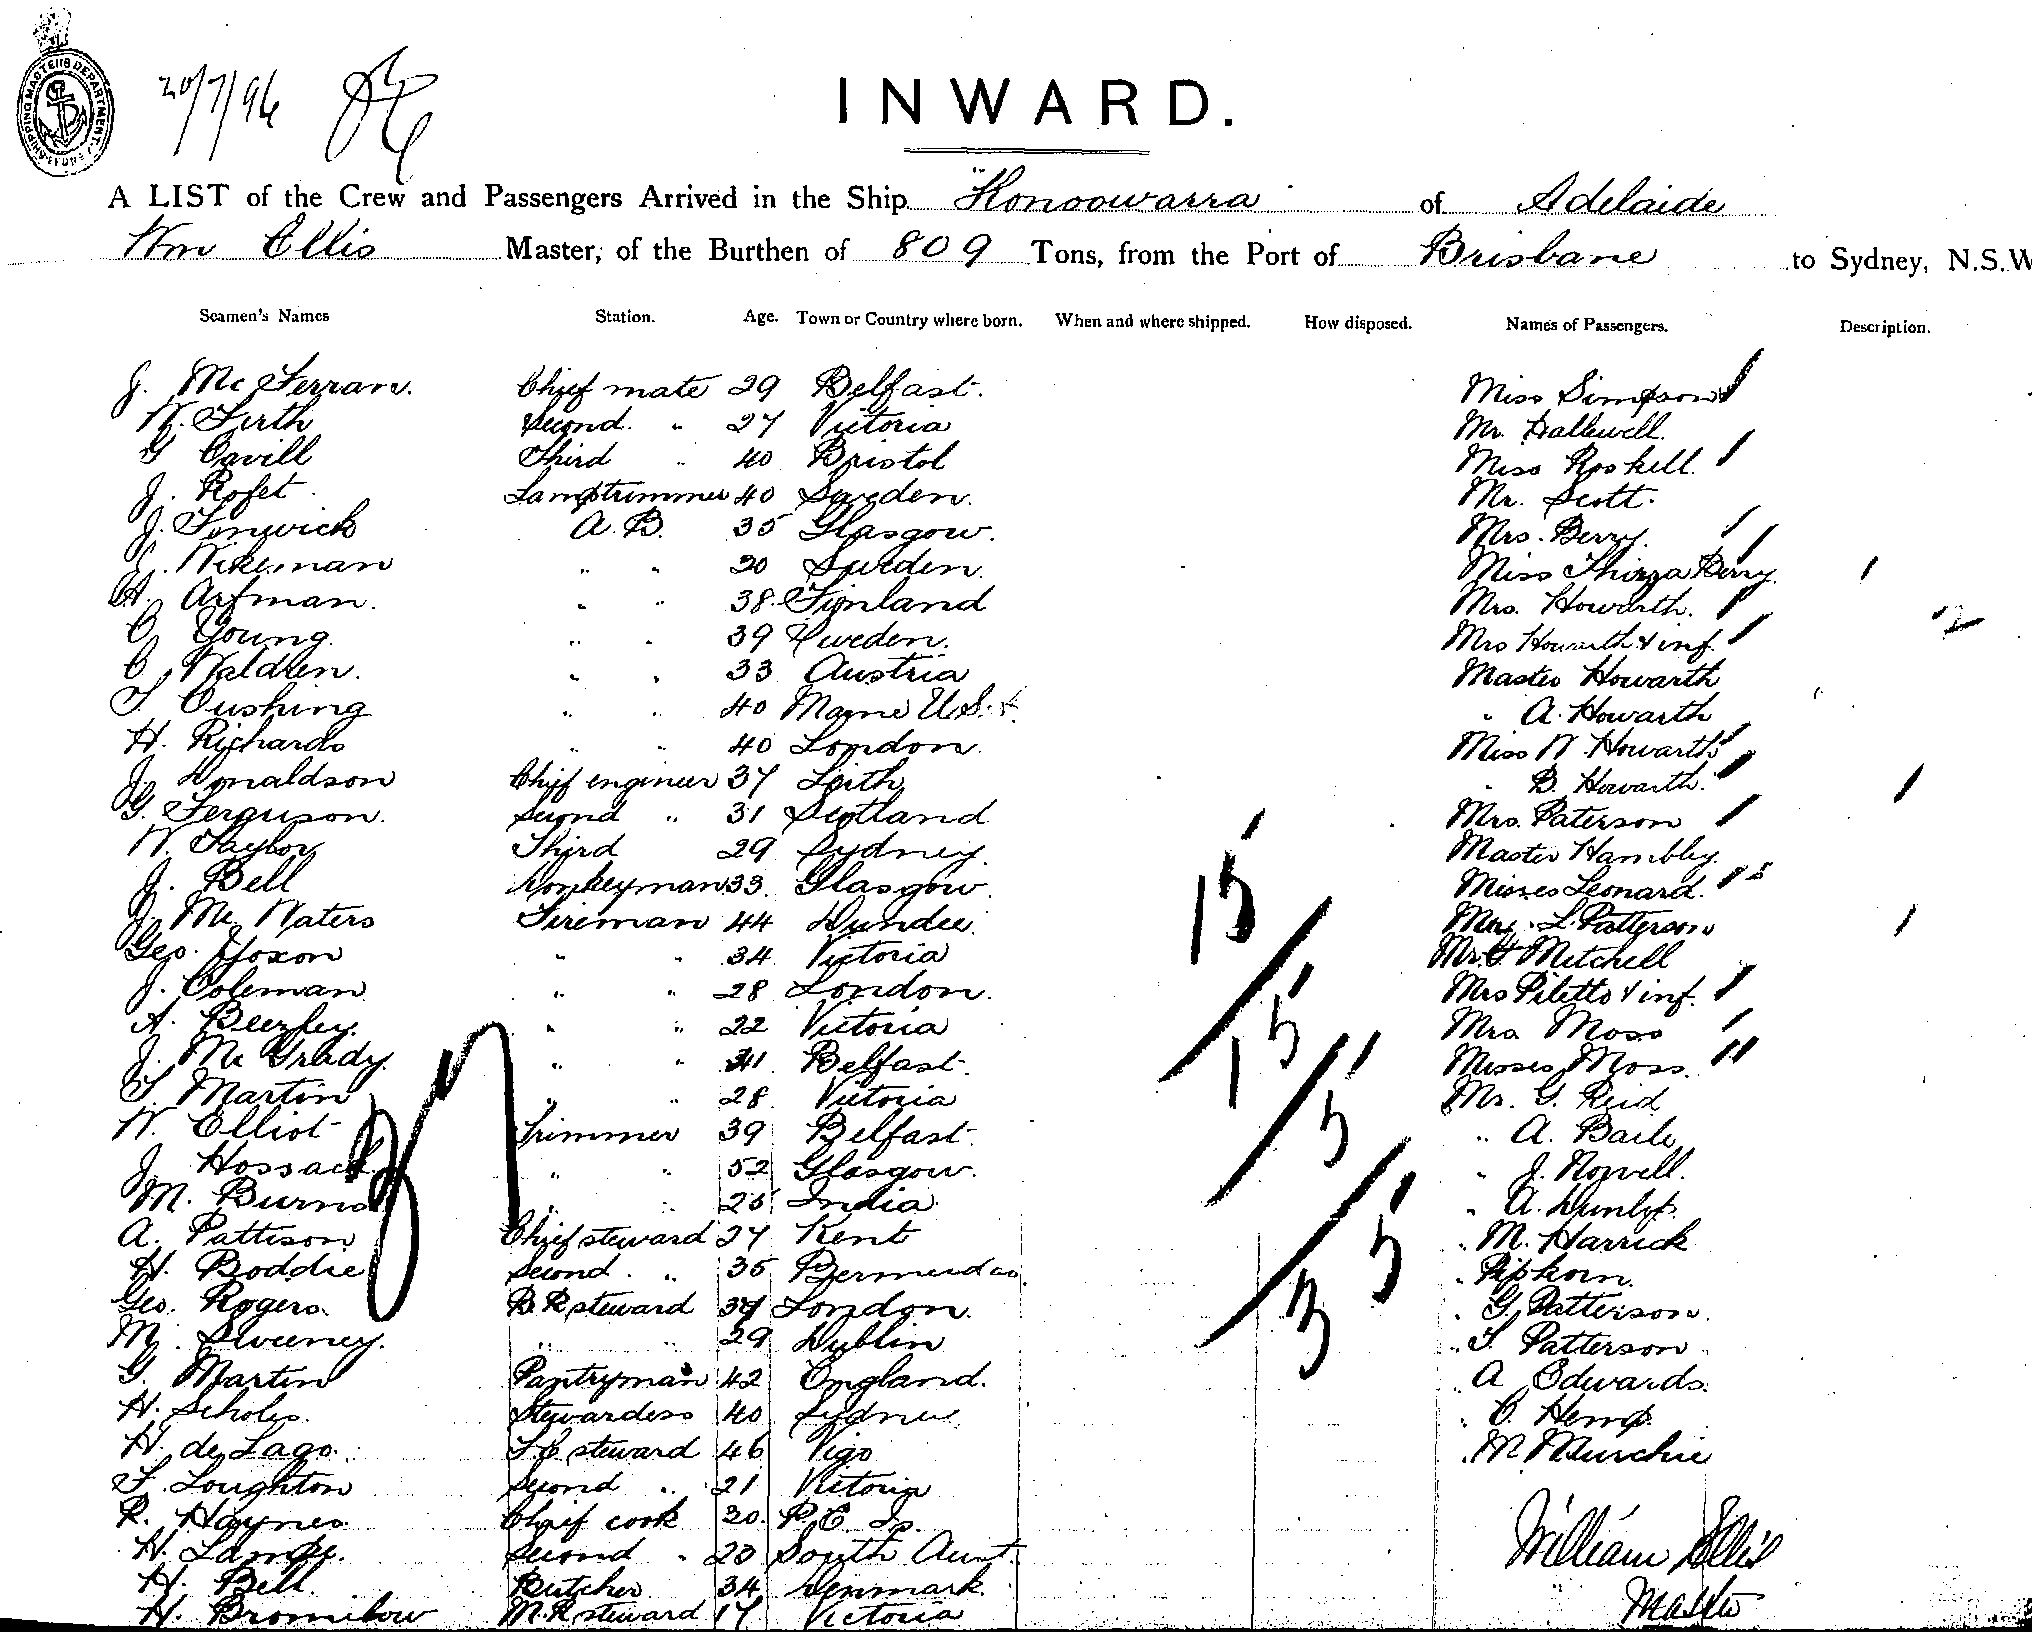 SHIPPING MASTER'S DEPARTMENT
20/7/96
INWARD.
A LIST of the Crew and Passengers Arrived in the Ship "Konoowarra" of Adelaide
Wm Ellis Master, of the Burthen of 809 Tons, from the Port of Brisbane to Sydney, N.S.W
Seamen's Names Station. Age. Town or Country where born. When and where shipped. How disposed. Names of Passengers. Description.
J. McFerran. Chief mate 29 Belfast. Miss Simpson
W. Firth Second " 27 Victoria Mr. Hallewell.
G Cavill Third " 40 Bristol Miss Roskell.
J. Rofet. Lamptrimmer 40 Sweden. Mr. Scott.
J. Fenwick A.B. 35 Glasgow. Mrs. Berry.
Wikeman " " 30 Sweden. Miss Thirza Berry.
A. Arfman. " " 38 Finland Mrs. Howarth.
C Young. " " 39 Sweden. Mrs Howarth & inf.
C Waldren. " " 33 Austria Master Howarth
T Cushing " " 40 Maine U.S.A. " A. Howarth
H. Richards " " 40 London. Miss W. Howarth
J. Donaldson Chief engineer 37 Leith " B. Howarth.
G. Ferguson. Second " 31 Scotland Mrs. Paterson
W. Taylor Third 29 Sydney. Master Hambley.
J. Bell Donkeyman 33. Glasgow. Misses Leonard.
J. McWaters Fireman 44 Dundee. L. Patterson
Geo. Yoxon " " 34 Victoria Mr. G Mitchell
J. Coleman " " 28 London. Mrs Piletto & inf.
A. Beezley. " " 22 Victoria Mrs Moss
J. McGrady. " " 31 Belfast. Misses Moss.
T. Martin " " 28 Victoria Mr. G. Reid
W. Elliot Trimmer 39 Belfast. " A. Baile
J Hossack. " " 52 Glasgow. " J. Nowell.
M. Burns " " 25 India " A. Dunlop.
A. Pattison Chief steward 27 Kent " M. Harrick
H. Boddie Second " 35 Bermudas. " Pipkorn.
Geo. Rogers. B.R steward 34 London. " G. Patterson.
M. Sweeney. " " 29 Dublin " T. Patterson
G. Martin Pantryman 42 England. " A Edwards.
H. Scholes. Stewardess 40 Sydney " C. Hemp.
H. de Lago. F.C steward 46 Vigo " M Murchie
T. Loughton second " 21 Victoria
R. Haynes Chief cook 30. P.E. Is.
H. Lampe. Second " 20 South Aust.
H. Bell. Butcher 34 Denmark.
H. Bromilow M.R steward 17 Victoria
William Ellis
Master
37
15
15
5
3 5